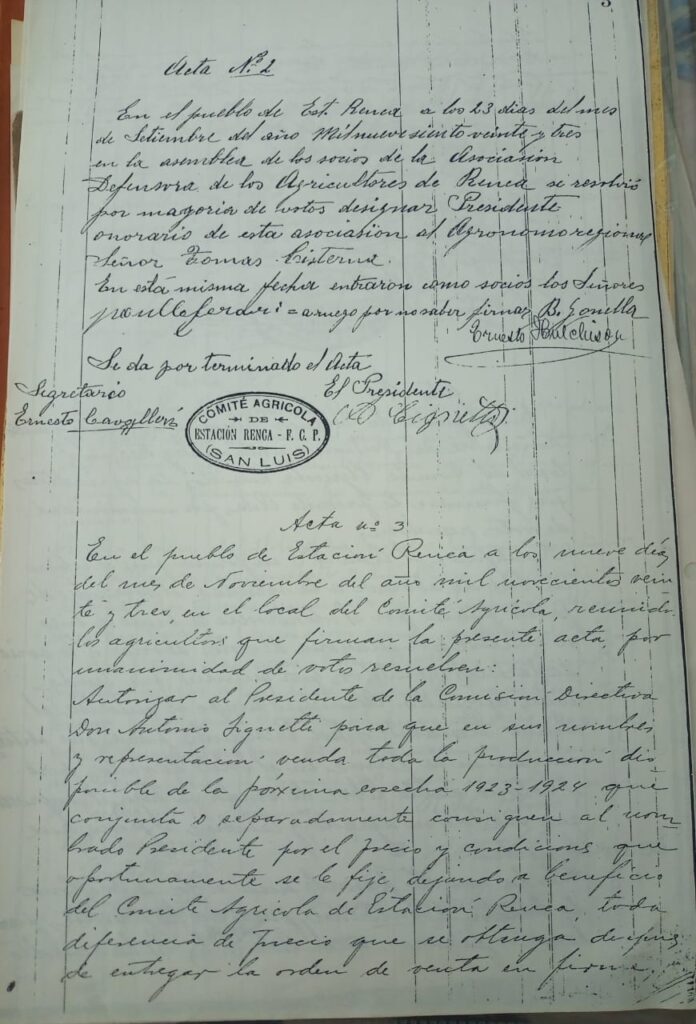 Acta Nº 2
En el pueblo de Est. Renca a los 23 dias del mes
de Setiembre del año Milnuevesiento veinte y tres
en la asemblea de los socios de la Asociasion
Defensora de los Agricultores de Renca se resolvió
por mayoria de votos designar Presidente
onorario de esta asociasion al Agronomo regional
Señor Tomas Cisterna.
En está misma fecha entraron como socios los Señores
= a ruego por no saber firmar B. Gonella
Ernesto
Se da por terminado el Acta
Segretario
El Presidente
Ernesto
COMITÉ AGRICOLA
DE
ESTACIÓN RENCA - F. C. P.
(SAN LUIS)
Acta nº 3
En el pueblo de Estación Renca a los nueve dias
del mes de Noviembre del año mil novecientos vein
te y tres, en el local del Comité Agrícola, reunido
los agricultores que firman la presente acta, por
unanimidad de votos resuelven:
Autorizar al Presidente de la Comision Directiva
Don Antonio Signetti para que en sus nombres
y representación venda toda la producción dis
ponible de la próxima cosecha 1923-1924 que
conjunta o separadamente consignen al nom
brado Presidente por el precio y condiciones que
oportunamente se le fije, dejando a beneficio
del Comité Agrícola de Estación Renca, toda
diferencia de precio que se obtenga despues
de entregar la orden de venta en firme.